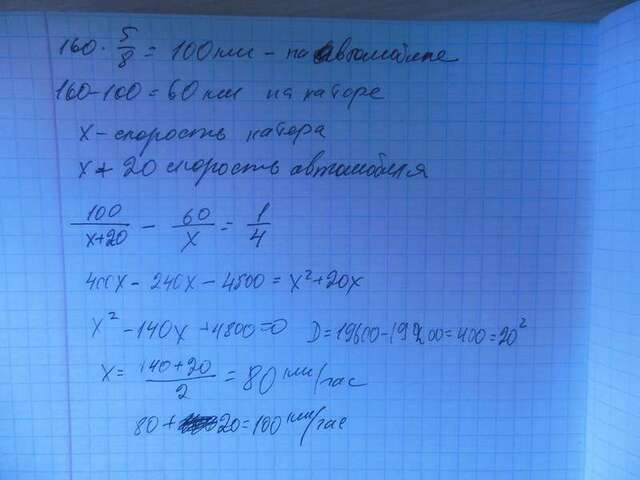 160 · 5/8 = 100 км - на автомобиле
160-100 = 60 км на катере
x - скорость катора
x + 20 скорость автомобиля
100/(x+20) - 60/x = 1/4
400x - 240x - 4800 = x² + 20x
x² - 140x + 4800 = 0 D = 19600 - 19200 = 400 = 20²
x = (140+20)/2 = 80 км/час
80 + 20 = 100 км/час